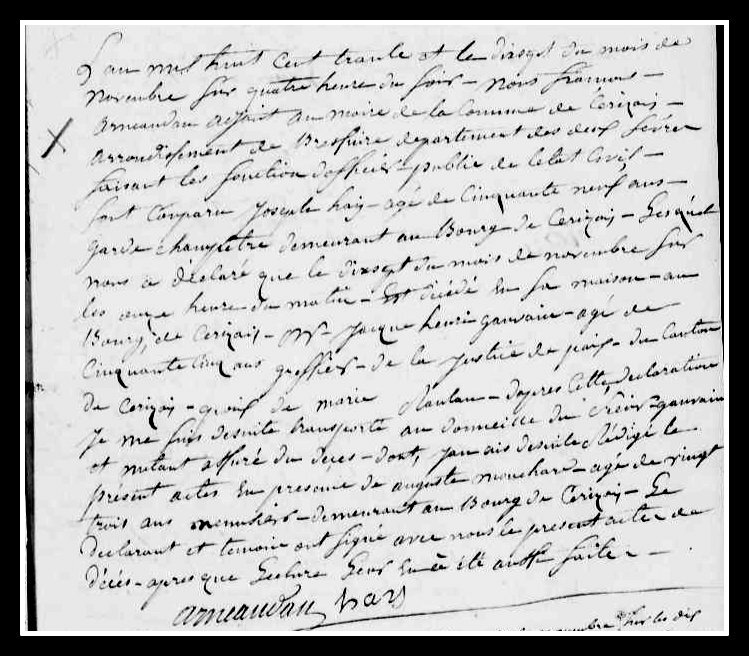 L'an mil huit cent trante et le dixsept du mois de
novembre sur quatre heure du soir – nous francois –
arneaudau adjoint au maire de la commune de Cerizais –
arrondissement de Bressuire departement des deux sevres
faisant les fonction dofficier publie de letat Civil –
sont Comparu Joseph hay – agé de Cinquante neuf ans –
garde champêtre demeurant au Bourg de Cerizais – Lesquel
nous a déclaré que le dixsept du mois de novembre sur
les onze heure du matin – Est décédé En sa maison – au
Bourg, de Cerizais – Mr Jacque henri gauvain – agé de
Cinquante Cinq ans greffier – de la Justice de paix – du Canton
de Cerizais – de marie – dapres Cette declaration
Je me suis desuite transporté au domicille du gauvain
et mètant assuré du deces – dont, desuite Rédigé le
présent actes En presence de auguste mouchard – agé de vingt
trois ans menuisier – demeurant au Bourg de Cerizais – Le
declarant et temoin ont signé avec nous le present acte de
décès – apres que Lecture Leur En à été aussi faite –
arneaudau hay
novembre sur les dix